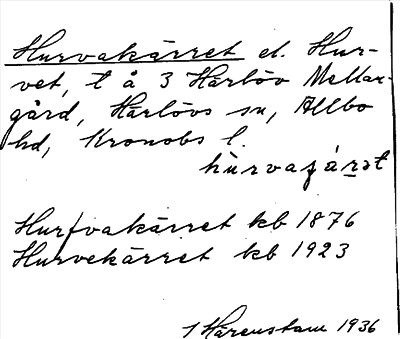 Hurvakärret el. Hur-
vet, t å 3 Härlöv Mellan-
gård, Härlövs sn, Allbo
hd, Kronobs l.
hùrvaʃárət
Hurfvakärret kb 1876
Hurvekärret kb 1923
1 Härenstam 1936